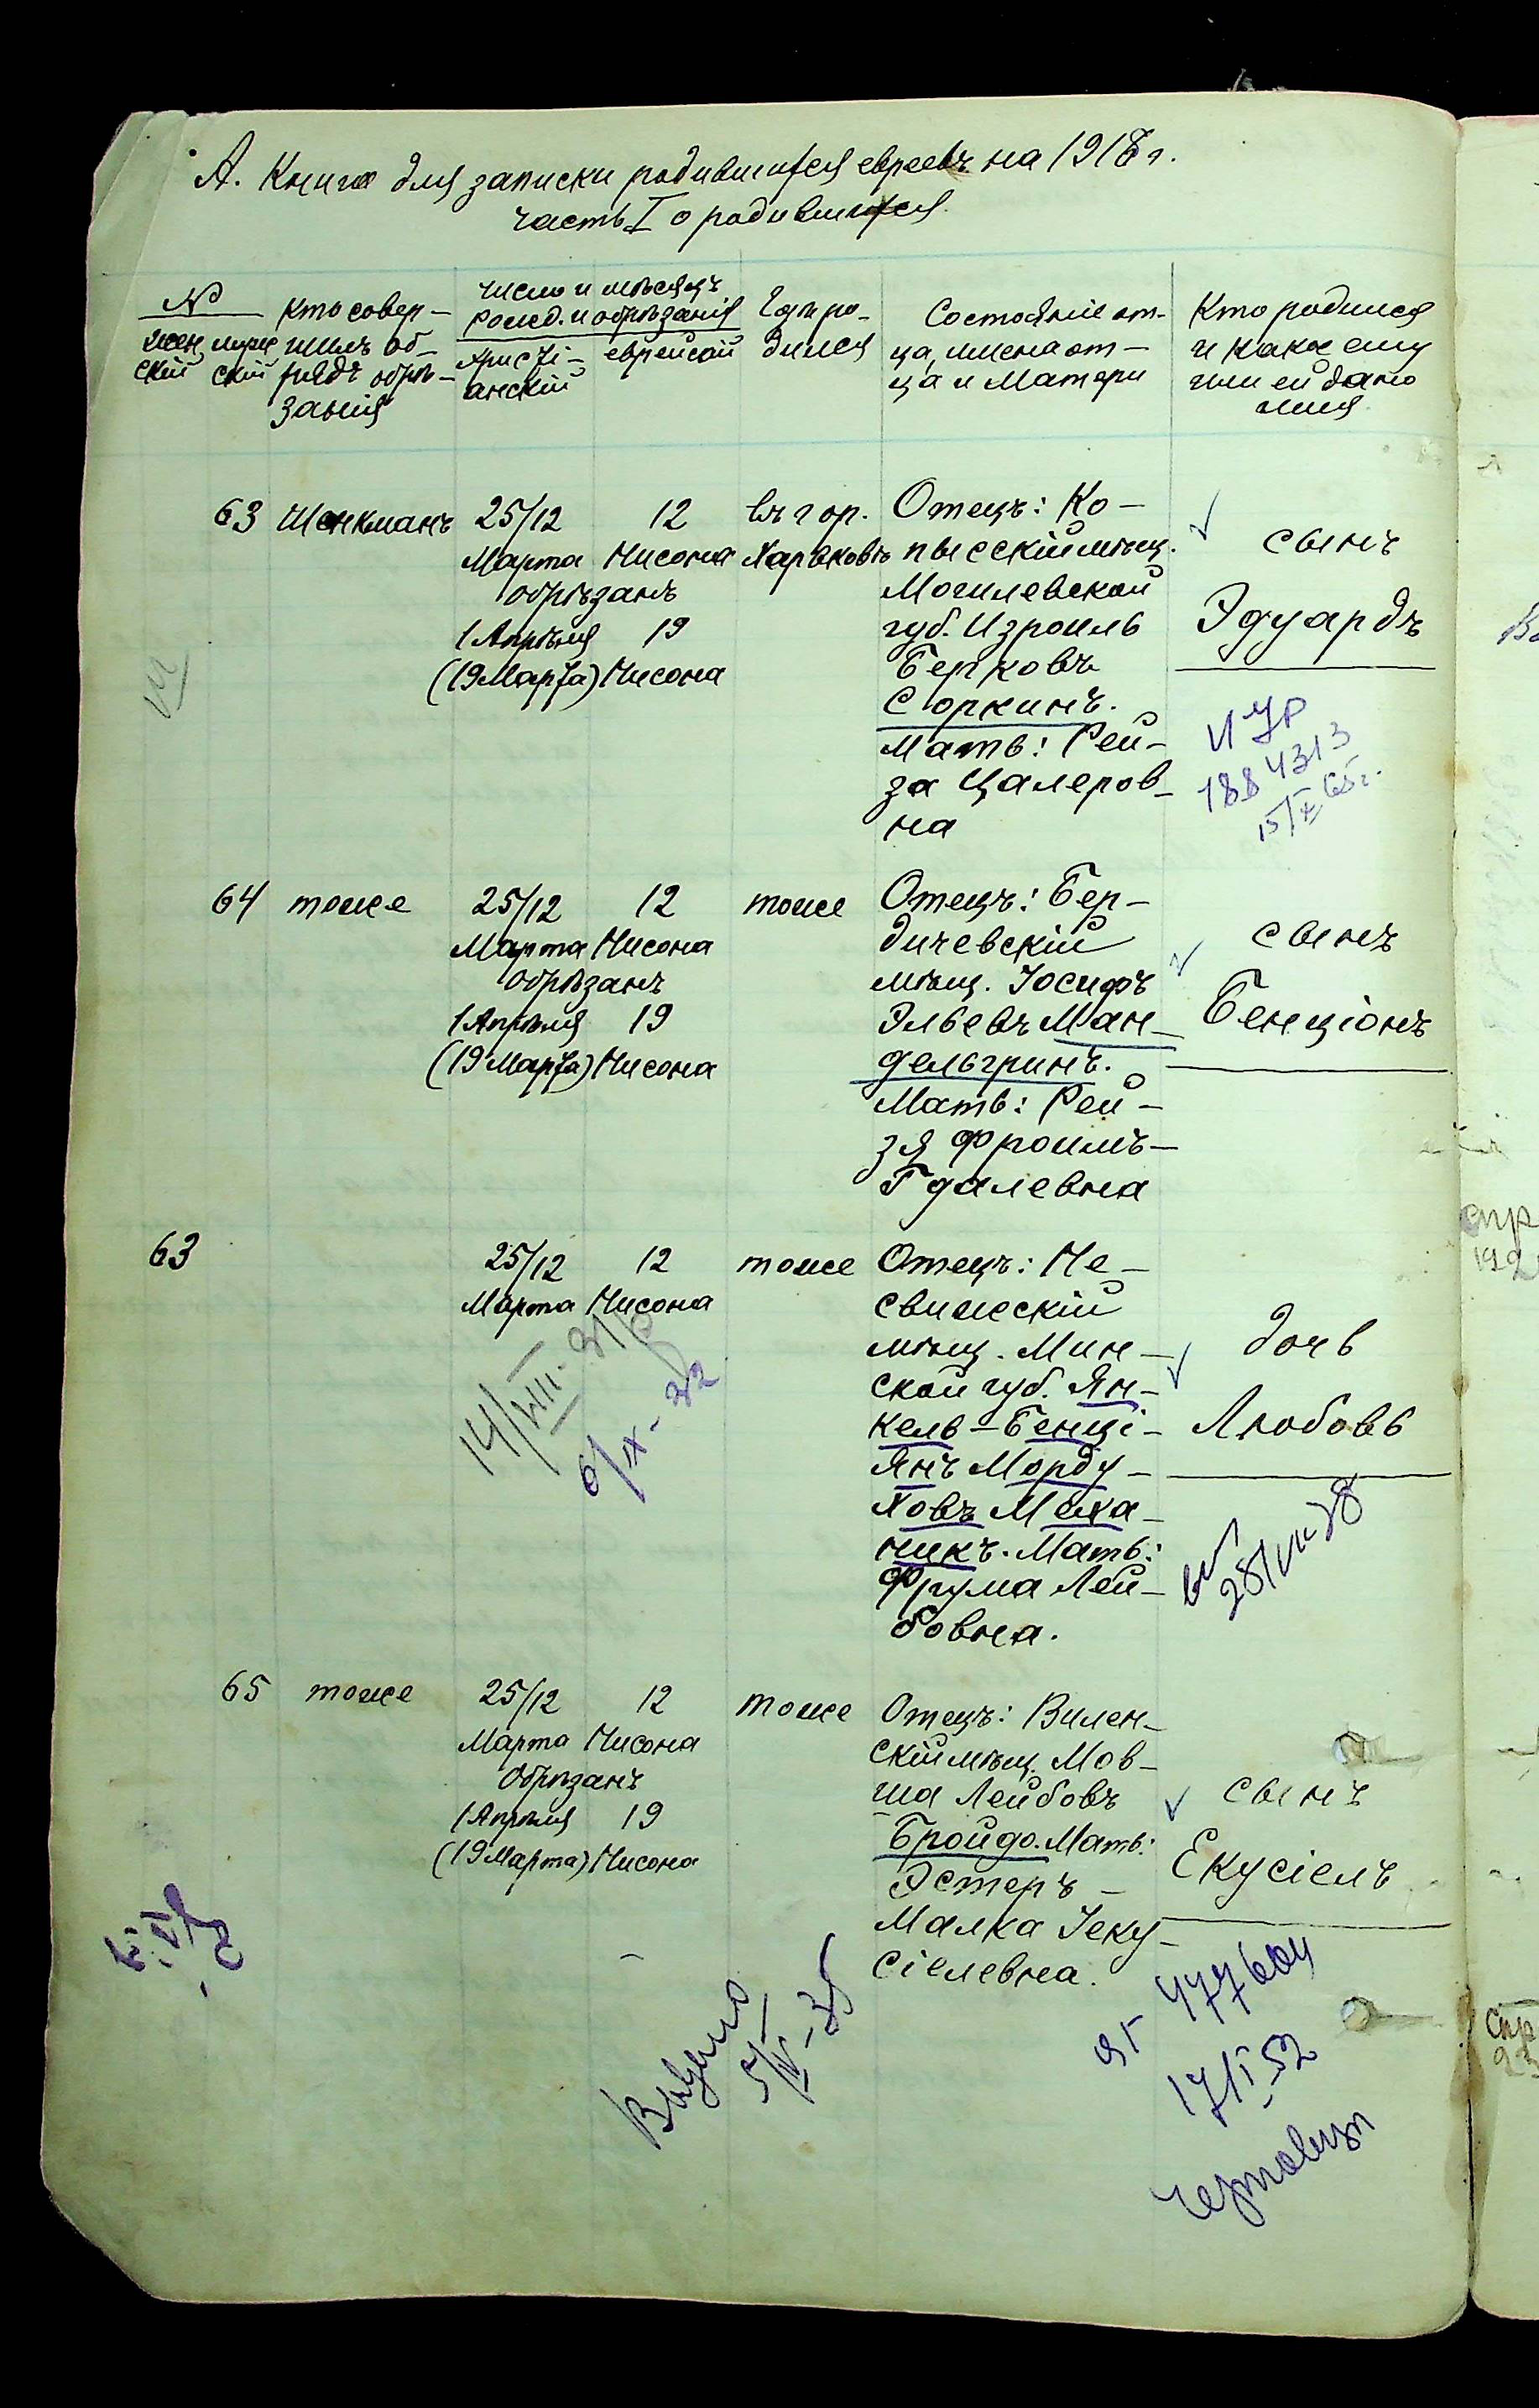 А. Книга для записки родившихся евреевъ на 1918 г.
часть I о родившихся.
№
жен мужс
скій скій
Кто совер-
шилъ об-
рядъ обрѣ-
занія
число и мѣсяцъ
рожд. и обрѣзанія
Христі-
анскій
еврейскій
Гдѣ ро-
дился
Состояніе от-
ца, имена от-
ца и Матери
Кто родился
и какое ему
или ей дано
имя
63 Шенкманъ
25/12
Марта
12
Нисона
обрѣзанъ
1 Апрѣля 19
(19 Марта) Нисона
въ гор.
Харьковѣ
Отецъ: Ко-
пысскій мѣщ.
Могилевской
губ. Изроиль
Берковъ
Соркинъ.
Мать: Рей-
за Цалеров-
на
сынъ
Эдуардъ
188 4313
15/X 65 г.
64 тоже
25/12
Марта
12
Нисона
обрѣзанъ
1 Апрѣля 19
(19 Марта) Нисона
тоже
Отецъ: Бер-
дичевскій
мѣщ. Іосифъ
Эльевъ Ман-
дельгринъ.
Мать: Рей-
зя Фроимъ-
Гдалевна
сынъ
Бенціонъ
63
25/12
Марта
12
Нисона
14/VIII-31
6/IX-32
тоже
Отецъ: Не-
свижскій
мѣщ. Мин-
ской губ. Ян-
кель-Бенці-
янъ Морду-
ховъ Меха-
никъ. Мать:
Фрума Лей-
бовна.
дочь
Любовь
28/VII-28
65 тоже
25/12
Марта
12
Нисона
обрѣзанъ
1 Апрѣля 19
(19 Марта) Нисона
тоже
Отецъ: Вилен-
скій мѣщ. Мов-
ша Лейбовъ
Бройдо. Мать:
Эстеръ-
Малка Іеку-
сіелевна.
сынъ
Екусіелъ
Выдано
5/V-35
ЯГ 477604
17/I-52
Черновцы